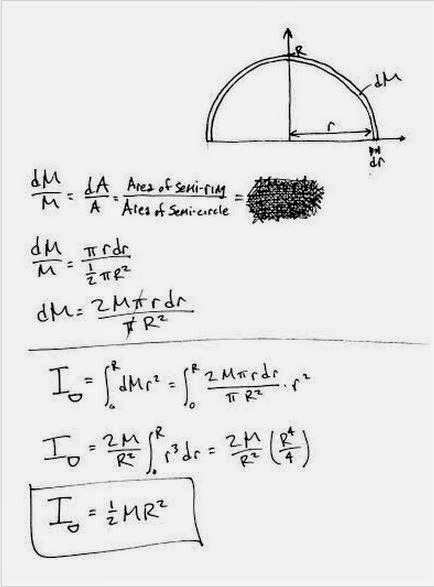 R
dM
r
dr
dM/M = dA/A = Area of semi-ring/Area of semi-circle =
dM/M = πrdr/(½πR²)
dM = 2Mπrdr/(πR²)
I_D = ∫₀ᴿ dMr² = ∫₀ᴿ 2Mπrdr/(πR²) · r²
I_D = 2M/R² ∫₀ᴿ r³dr = 2M/R² (R⁴/4)
I_D = ½MR²